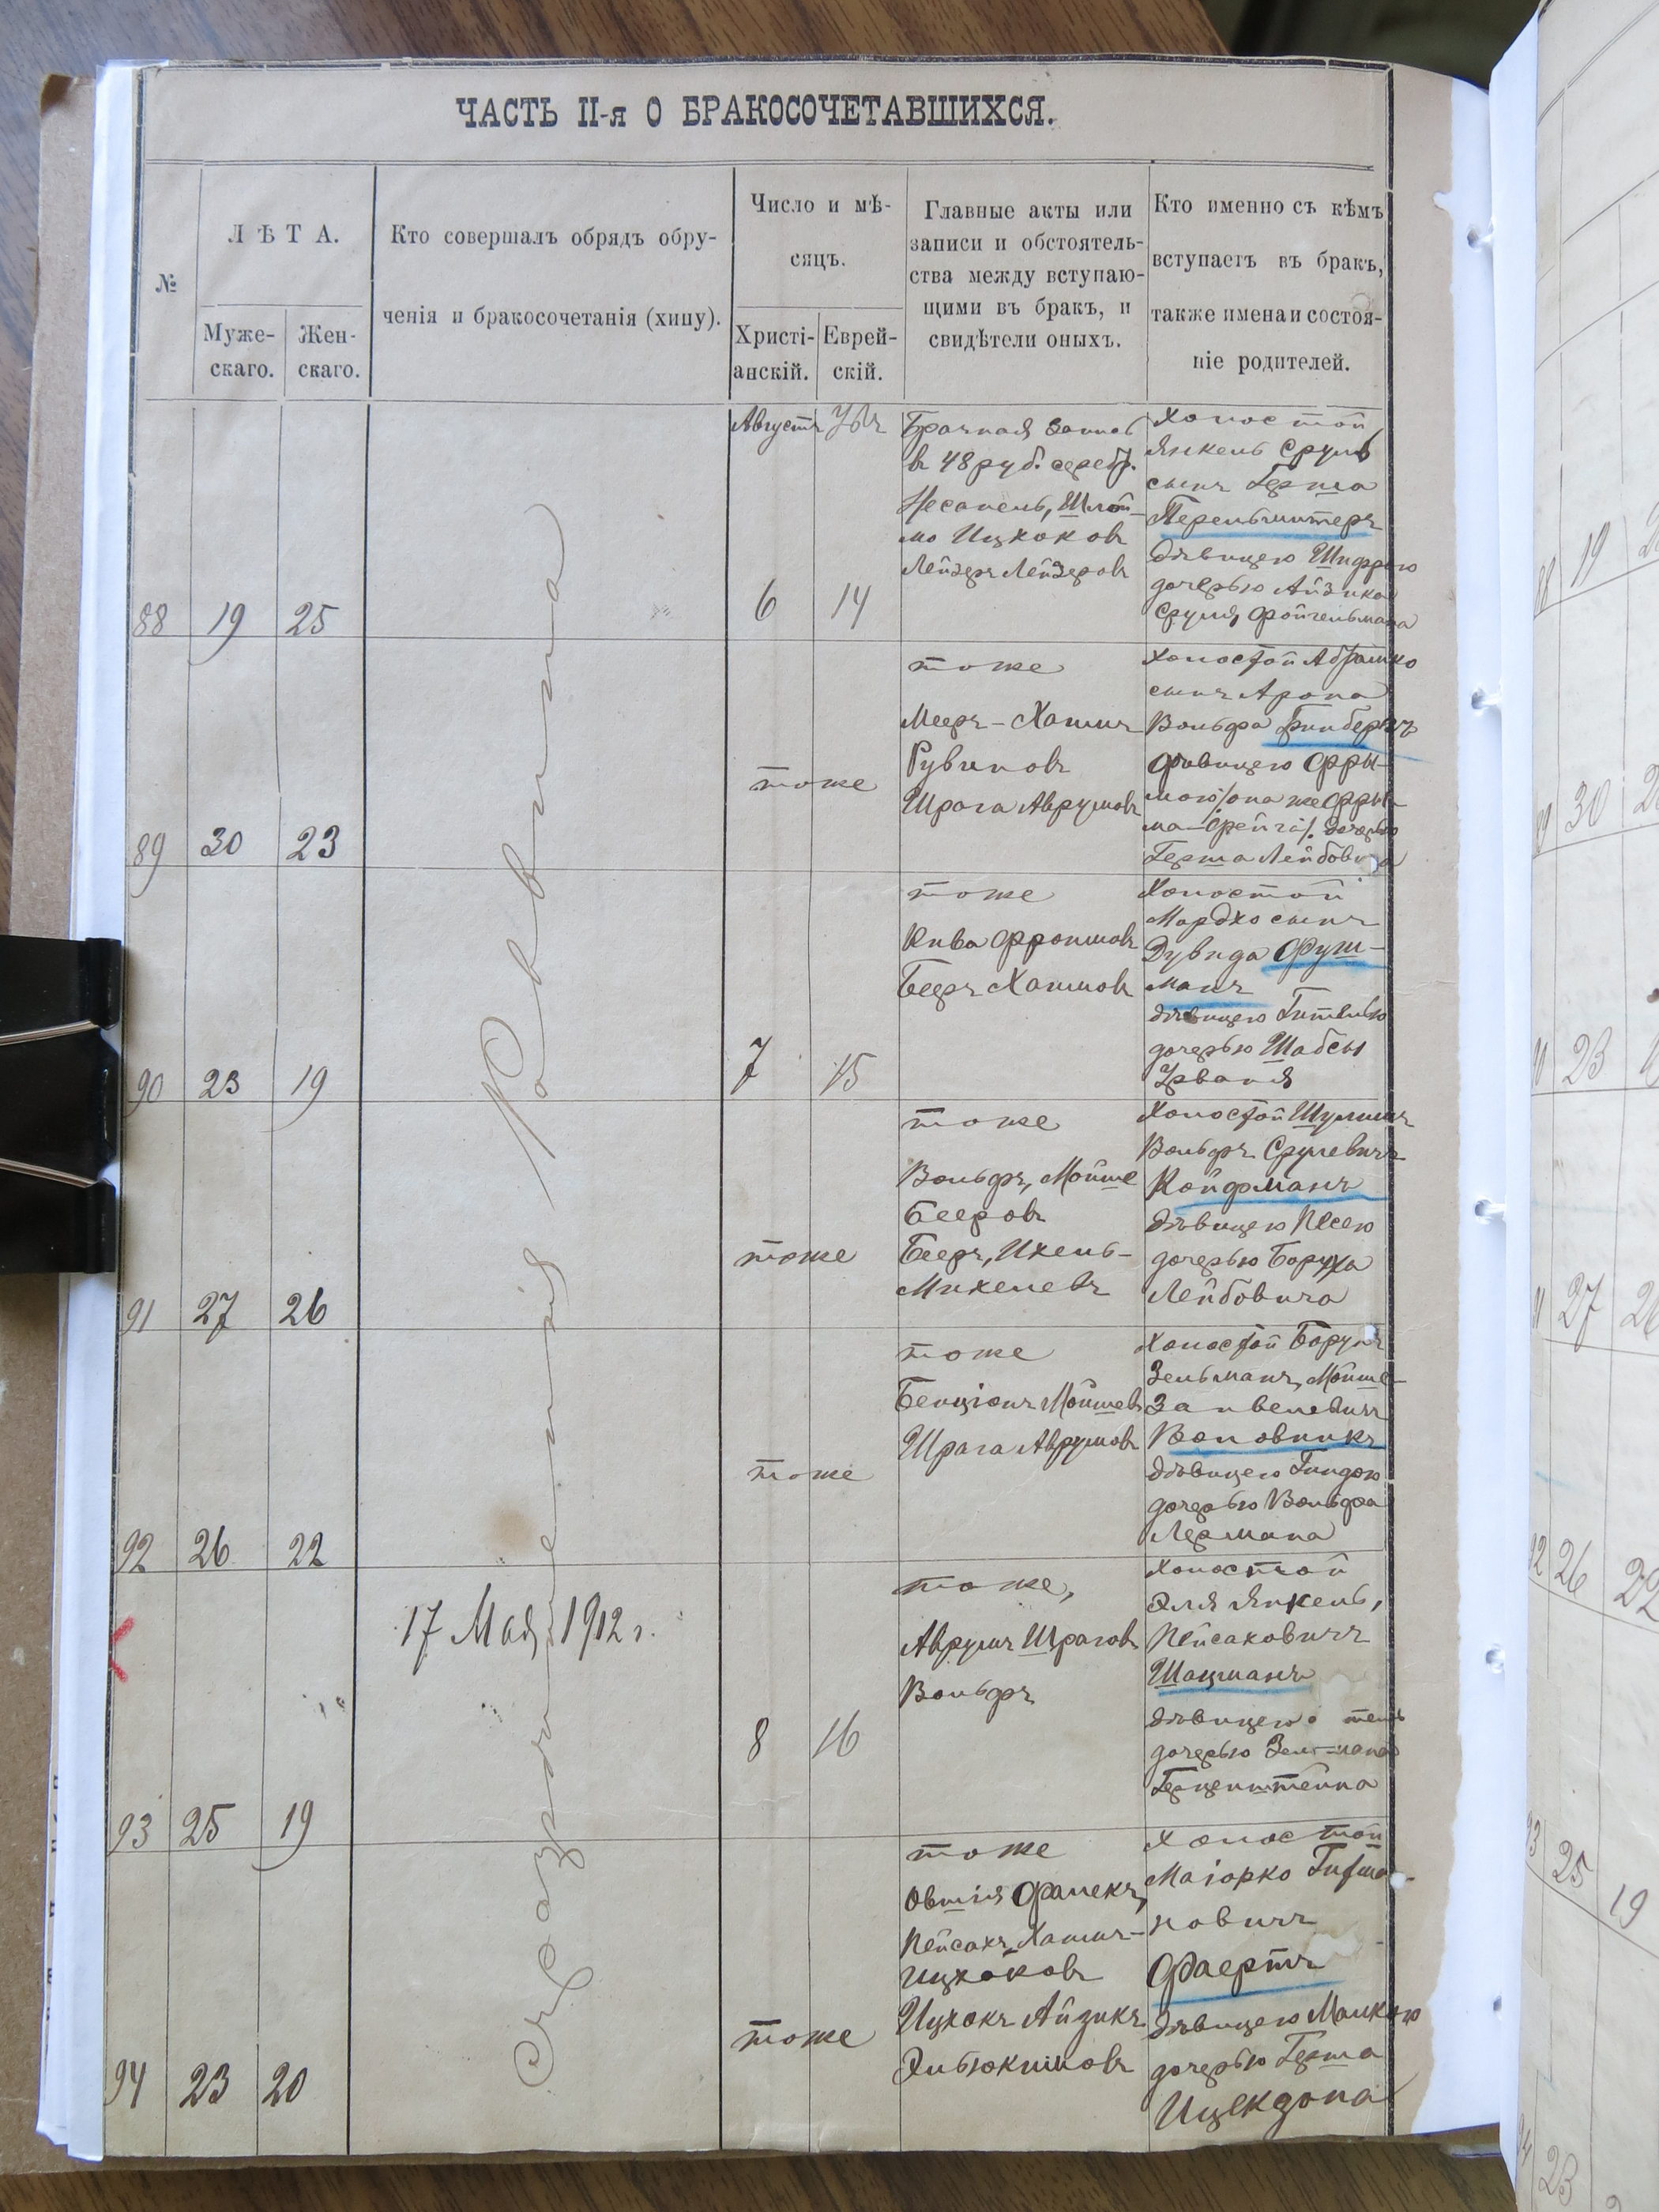 ЧАСТЬ II-я О БРАКОСОЧЕТАВШИХСЯ.
№
ЛѢТА.
Муже-
скаго.
Жен-
скаго.
Кто совершалъ обрядъ обру-
ченія и бракосочетанія (хипу).
Число и мѣ-
сяцъ.
Христі-
анскій.
Еврей-
скій.
Главные акты или
записи и обстоятель-
ства между вступаю-
щими въ бракъ, и
свидѣтели оныхъ.
Кто именно съ кѣмъ
вступаетъ въ бракъ,
также имена и состоя-
ніе родителей.
88 19 25
Августъ
6 14
Брачная запись
въ 48 руб. серебр.
Лейзеръ Лейзеровъ
Холостой
Янкель Сруль
сынъ Герша
Перельмитеръ
дѣвицею Шифрою
дочерью Айзика
Сруля Фойгельмана
89 30 23
тоже
тоже
Мееръ-Хаимъ
Рувиновъ
Шрага Аврумовъ
Холостой Абрашко
сынъ Арона
Вольфа Гинбергъ
дѣвицею Фры-
мою /она же Фры-
ма-Фрейга/. дочерью
Герша Лейбовича
90 23 19
7 15
тоже
Кива Фроимовъ
Бееръ Хаимовъ
Холостой
Мордко сынъ
Дувида Фуш-
манъ
дѣвицею Гителью
дочерью Шабсы
91 27 26
тоже
тоже
Вольфъ, Мойше
Бееровъ
Бееръ, Ихель-
Михелевъ
Холостой Шулимъ
Вольфъ Срулевичъ
Койфманъ
дѣвицею Песею
дочерью Боруха
Лейбовича
92 26 22
тоже
тоже
Бенціонъ Мойшевъ
Шрага Аврумовъ
Холостой Борухъ
Зельманъ, Мойше-
Занвелевичъ
Воловникъ
дѣвицею Гиндою
дочерью Вольфа
Лермана
17 Мая 1912 г.
93 25 19
8 16
тоже,
Аврумъ Шраговъ
Вольфъ
Холостой
Эля Янкель,
Пейсаховичъ
Шацманъ
дѣвицею
дочерью Зельмана
Герценштейна
94 23 20
тоже
тоже
Овшія Фалекъ,
Пейсахъ, Хаимъ-
Ицхоковъ
Ицхокъ Айзикъ
Эльюкимовъ
Холостой
Маіорко
новичъ
Фаертъ
дѣвицею Малкою
дочерью Герша
Ицекзона
Съ разрешенія Раввина